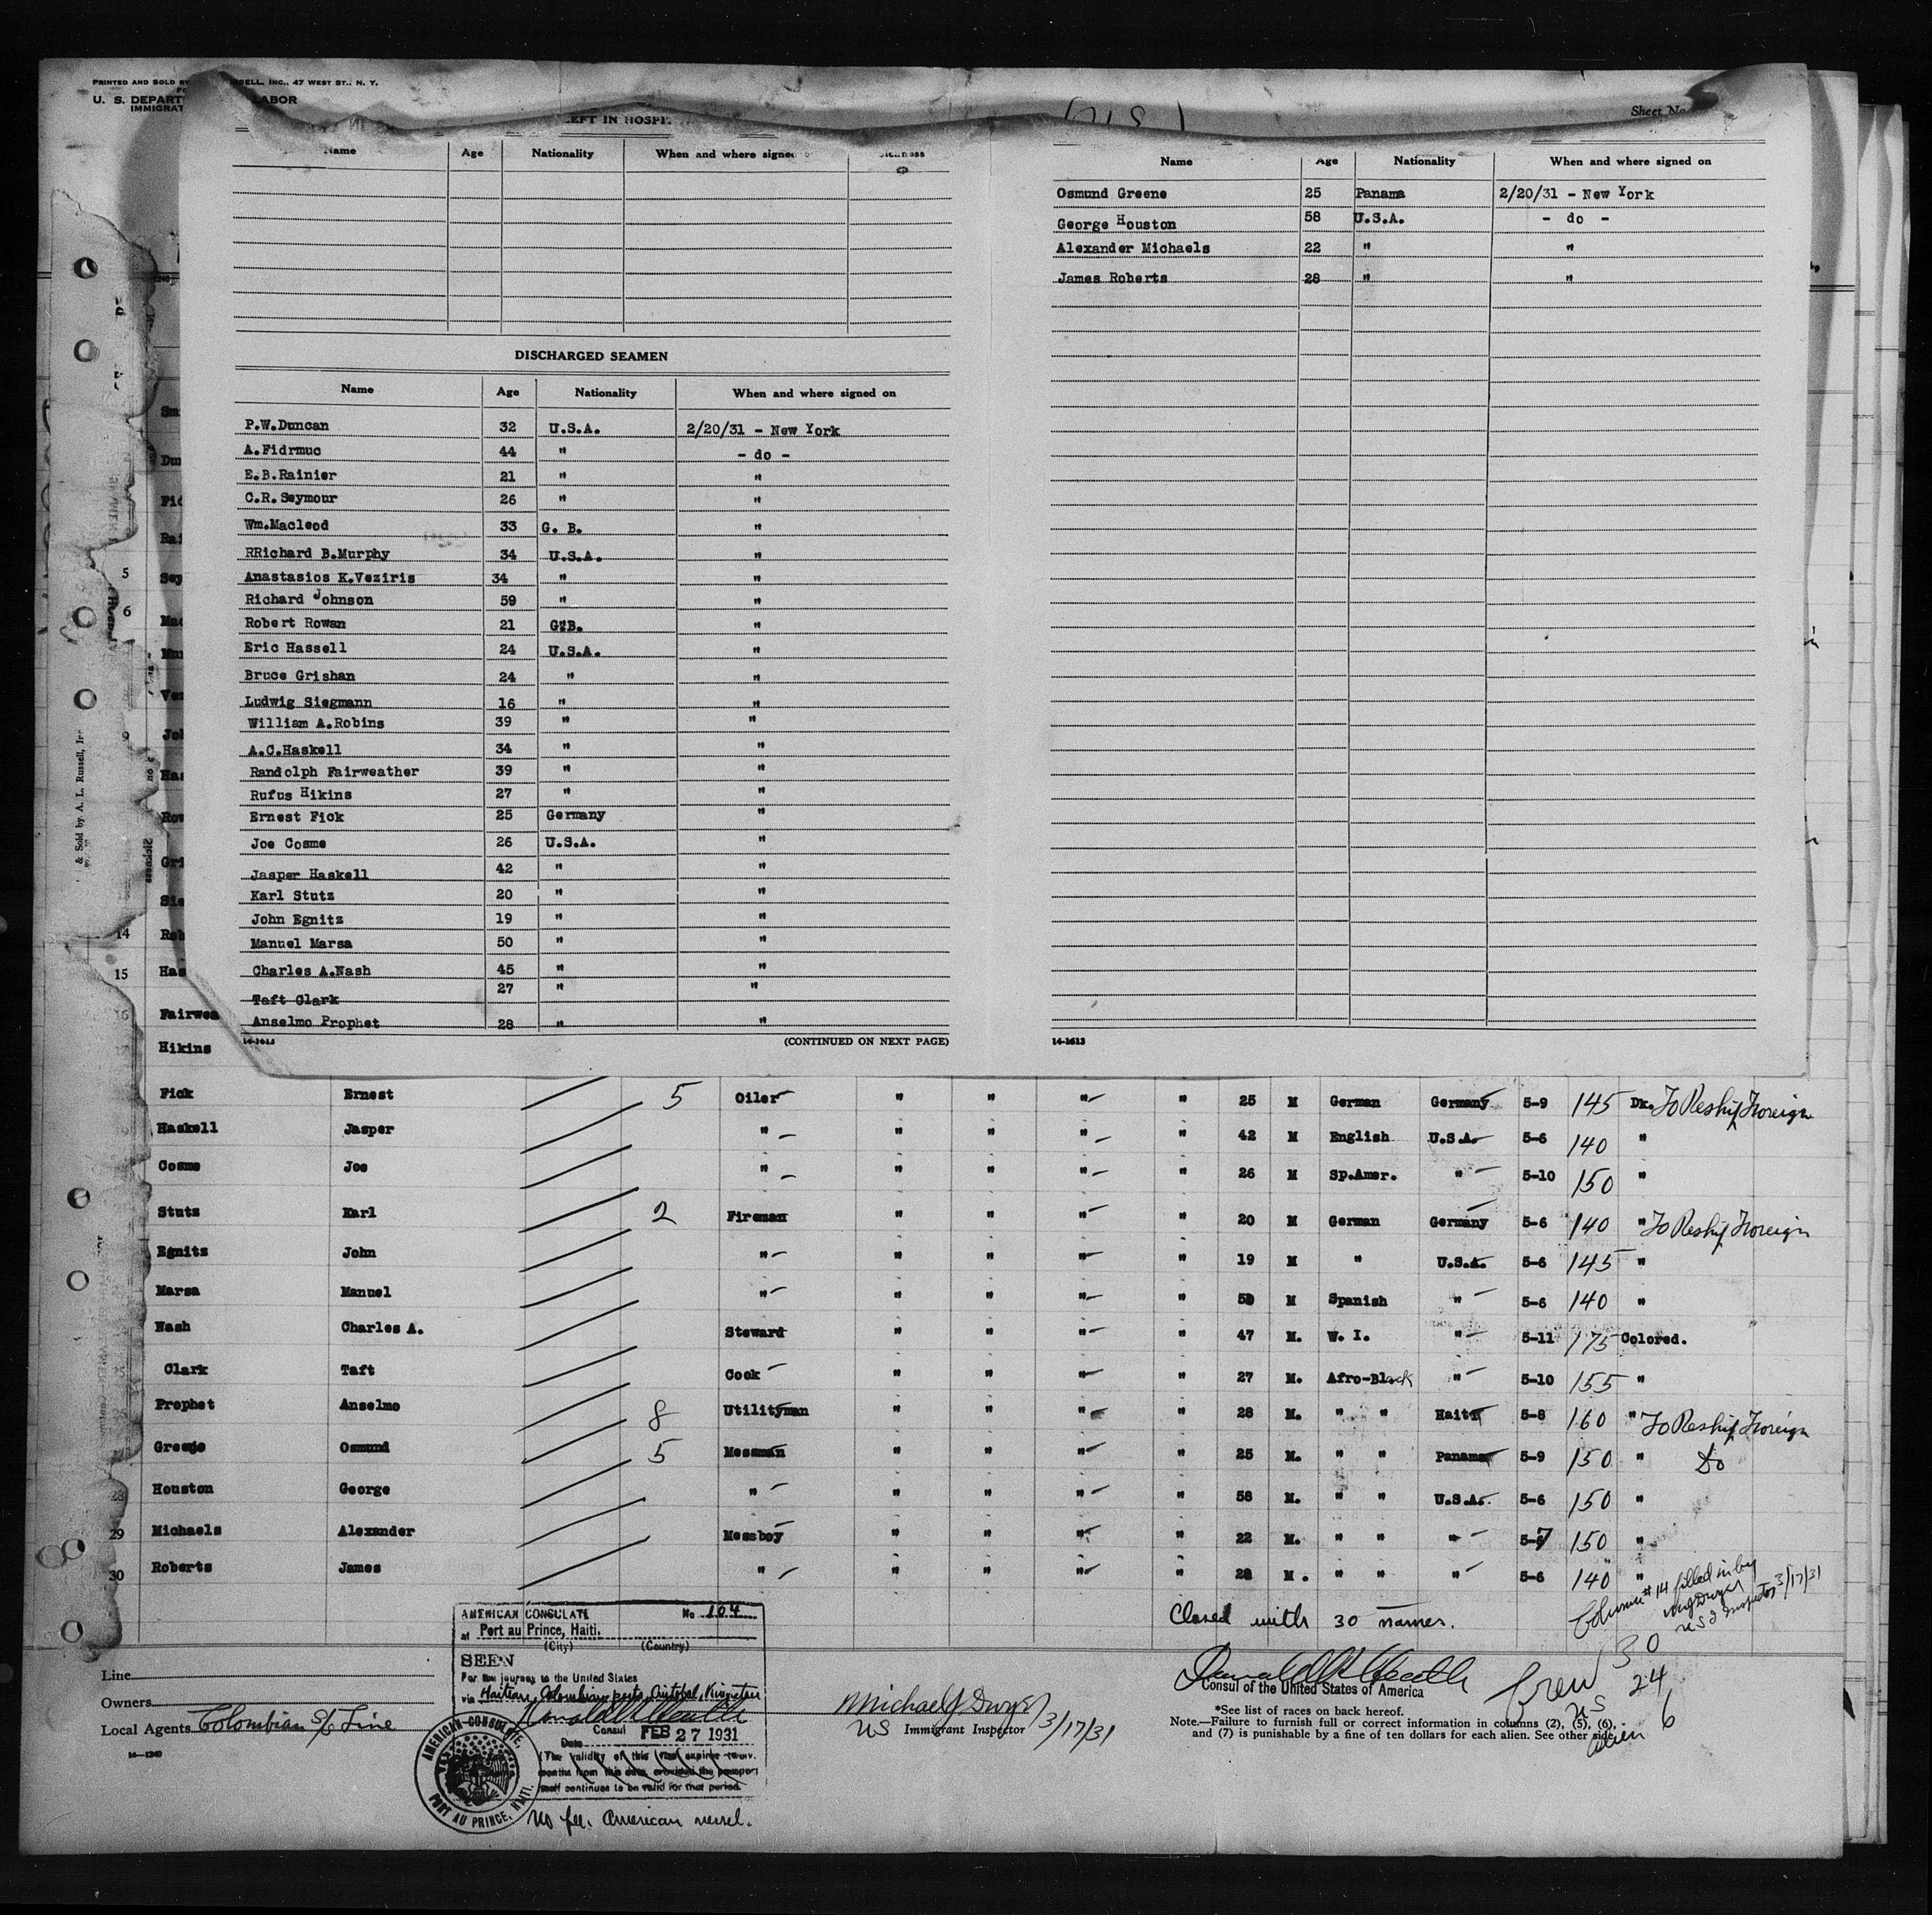 PRINTED AND SOLD BY
SELL, INC., 47 WEST ST., N. Y.
U. S. DEPART
LABOR
IMMIGRAT
Sheet No
LEFT IN HOSPI
Name Age Nationality When and where signed
DISCHARGED SEAMEN
Name Age Nationality When and where signed on
P.W.Duncan 32 U.S.A. 2/20/31 - New York
A.Fidrmuc 44 " - do -
E.B.Rainier 21 " "
C.R.Seymour 26 " "
Wm.Macleod 33 G. B. "
RRichard B.Murphy 34 U.S.A. "
Anastasios K.Veziris 34 " "
Richard Johnson 59 " "
Robert Rowan 21 G.B. "
Eric Hassell 24 U.S.A. "
Bruce Grishan 24 " "
Ludwig Siegmann 16 " "
William A.Robins 39 " "
A.C.Haskell 34 " "
Randolph Fairweather 39 " "
Rufus Hikins 27 " "
Ernest Fick 25 Germany "
Joe Cosme 26 U.S.A. "
Jasper Haskell 42 " "
Karl Stutz 20 " "
John Egnitz 19 " "
Manuel Marsa 50 " "
Charles A.Nash 45 " "
Taft Clark 27 " "
Anselmo Prophet 28 " "
14-1613 (CONTINUED ON NEXT PAGE)
Name Age Nationality When and where signed on
Osmund Greene 25 Panama 2/20/31 - New York
George Houston 58 U.S.A. - do -
Alexander Michaels 22 " "
James Roberts 28 " "
14-1613
& Sold by A. L. Russell, Inc
Dun
Fic
Rai
5 Sey
6 Mac
Mur
Ver
9 Joh
Has
Row
Gri
Sie
14 Rob
15 Has
16 Fairwea
17 Hikins
Fick Ernest 5 Oiler " " " " 25 M German Germany 5-9 145 Dk. To Reship Foreign
Haskell Jasper " " " " " 42 M English U.S.A. 5-6 140 "
Cosme Joe " " " " " 26 M Sp.Amer. " 5-10 150 "
Stutz Karl 2 Fireman " " " " 20 M German Germany 5-6 140 " To Reship Foreign
Egnitz John " " " " " 19 M " U.S.A. 5-6 145 "
Marsa Manuel " " " " " 50 M Spanish " 5-6 140 "
Nash Charles A. Steward " " " " 47 M. W. I. " 5-11 175 Colored.
Clark Taft Cook " " " " 27 M. Afro-Black " 5-10 155 "
Prophet Anselmo 8 Utilityman " " " " 28 M. " " Haiti 5-8 160 " To Reship Foreign
Greene Osmund 5 Messman " " " " 25 M. " " Panama 5-9 150 " Do
28 Houston George " " " " " 58 M. " " U.S.A. 5-6 150 "
29 Michaels Alexander Messboy " " " " 22 M. " " " 5-7 150 "
30 Roberts James " " " " " 28 M. " " " 5-6 140 "
Closed with 30 names.
Column #14 filled in by
M J Dwyer
US Inspector 3/17/31
AMERICAN CONSULATE No 104
at Port au Prince, Haiti.
(City) (Country)
SEEN
For the journey to the United States
via Haitian, Colombian ports, Cristobal, Kingston
Donald R Heath
Consul
Date FEB 27 1931
(The validity of this visa expires twelve
months from this date, provided the passport
itself continues to be valid for that period.
AMERICAN CONSULATE.
PORT AU PRINCE, HAITI.
No fee. American vessel.
Line
Owners
Local Agents Colombian S/S Line
14-1240
Michael J Dwyer
US Immigrant Inspector 3/17/31
Donald R Heath
Consul of the United States of America
*See list of races on back hereof.
Note.—Failure to furnish full or correct information in columns (2), (5), (6),
and (7) is punishable by a fine of ten dollars for each alien. See other side.
Crew 30
US 24
Alien 6